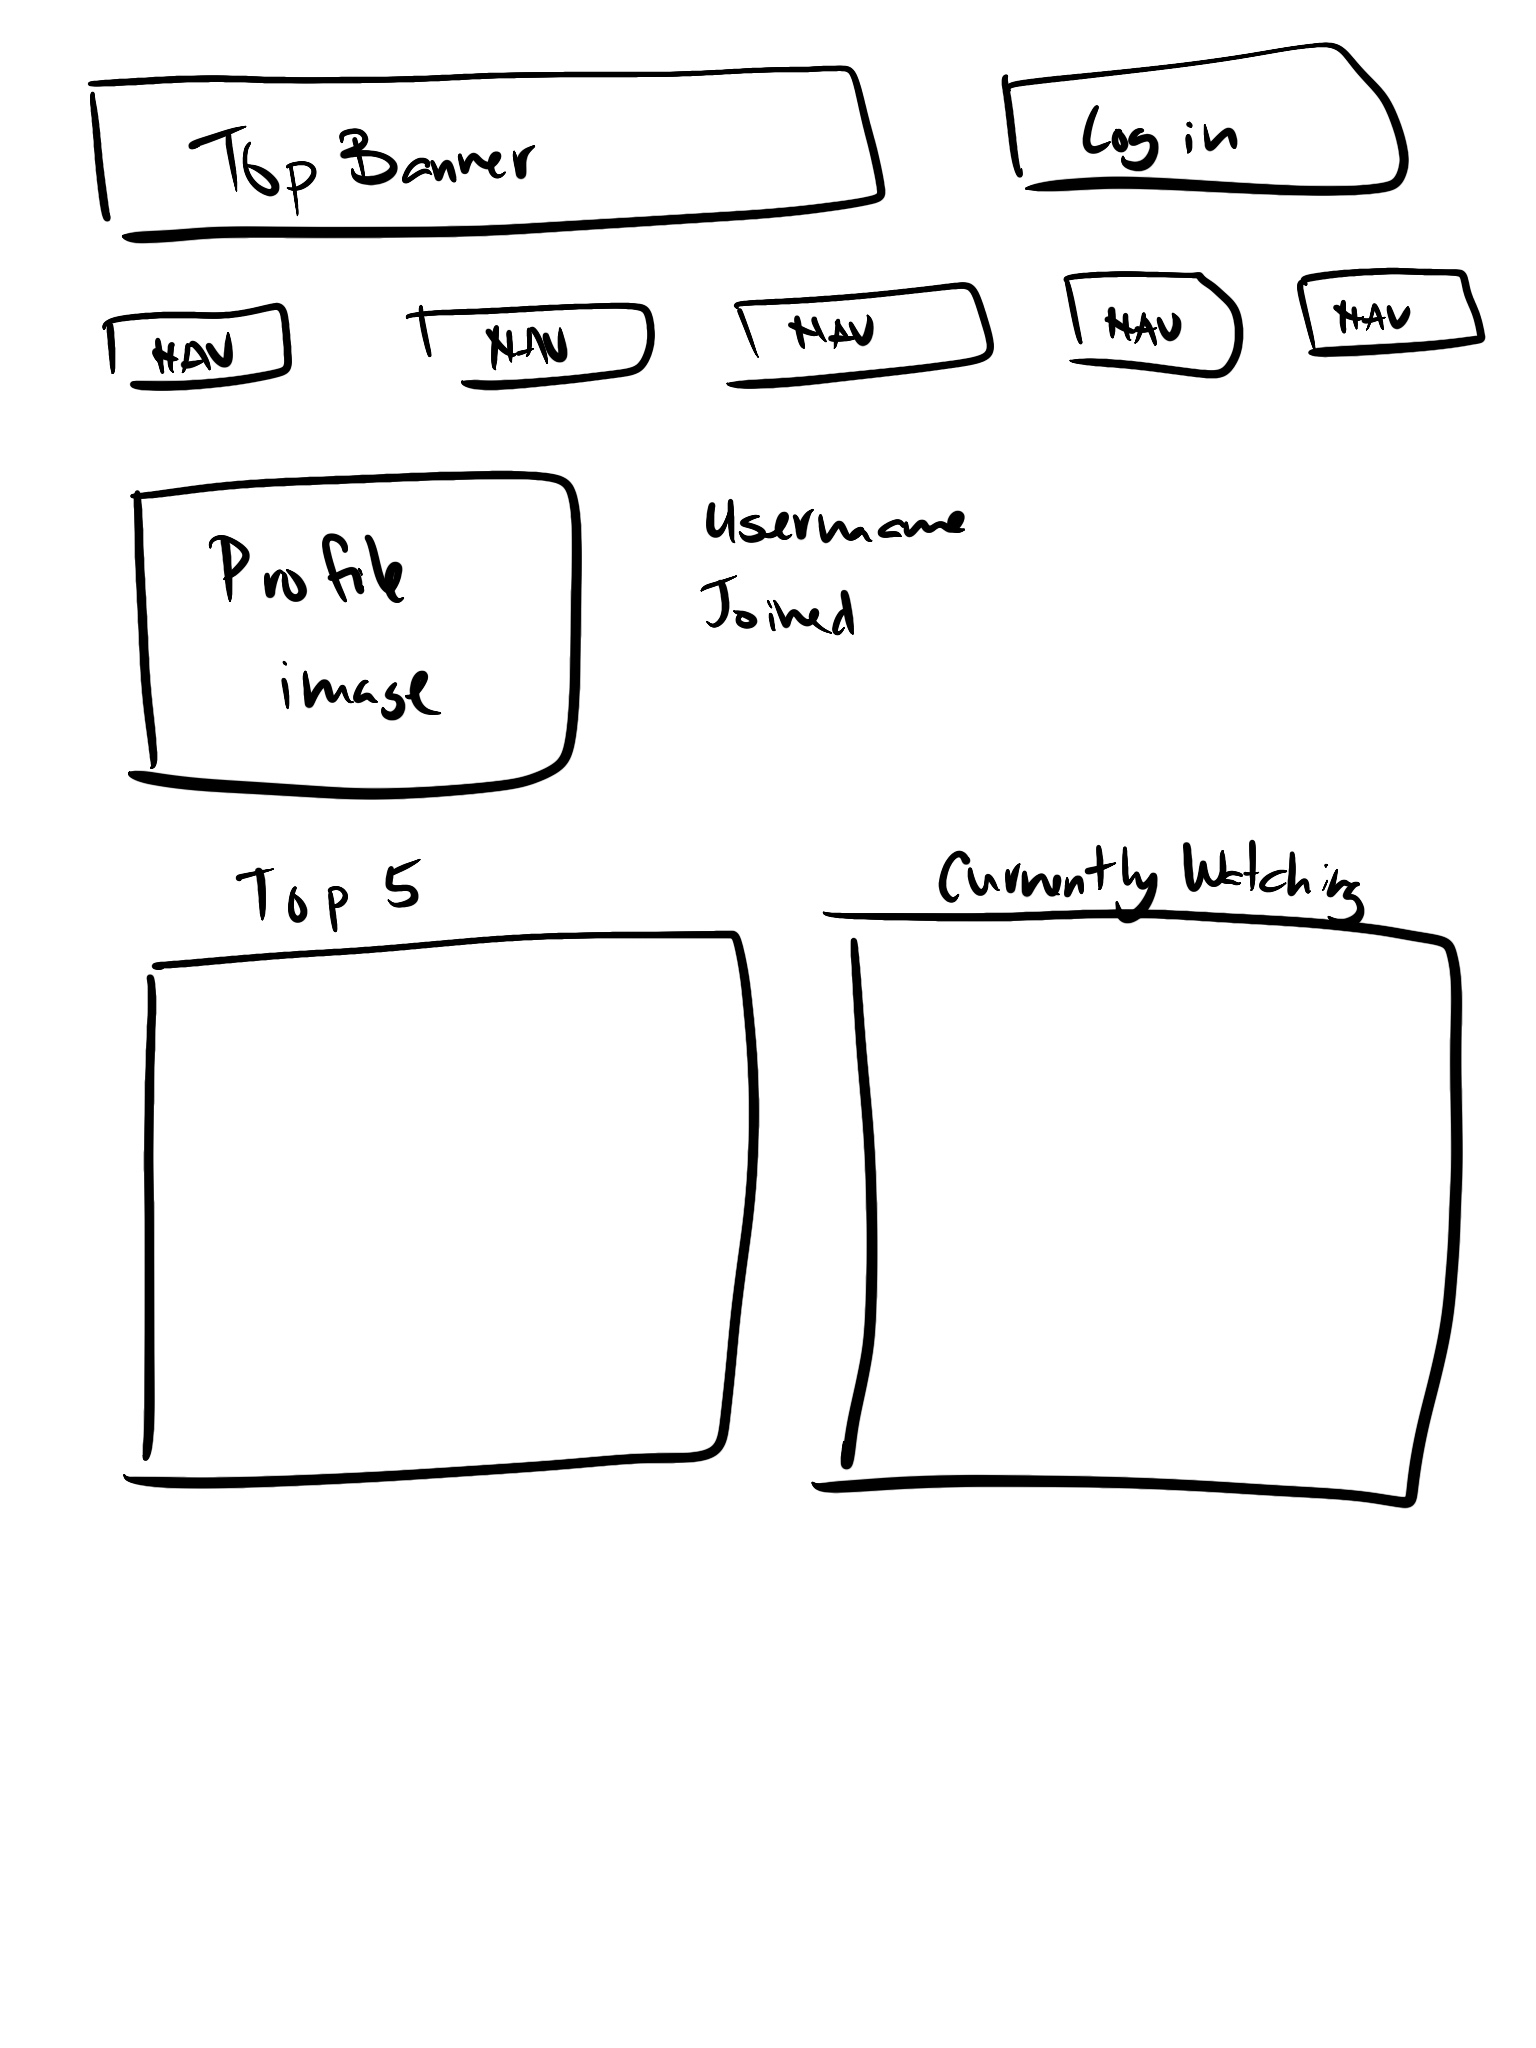 Top Banner
Log in
NAV
NAV
NAV
NAV
NAV
Profile
image
Username
Joined
Top 5
Currently Watching